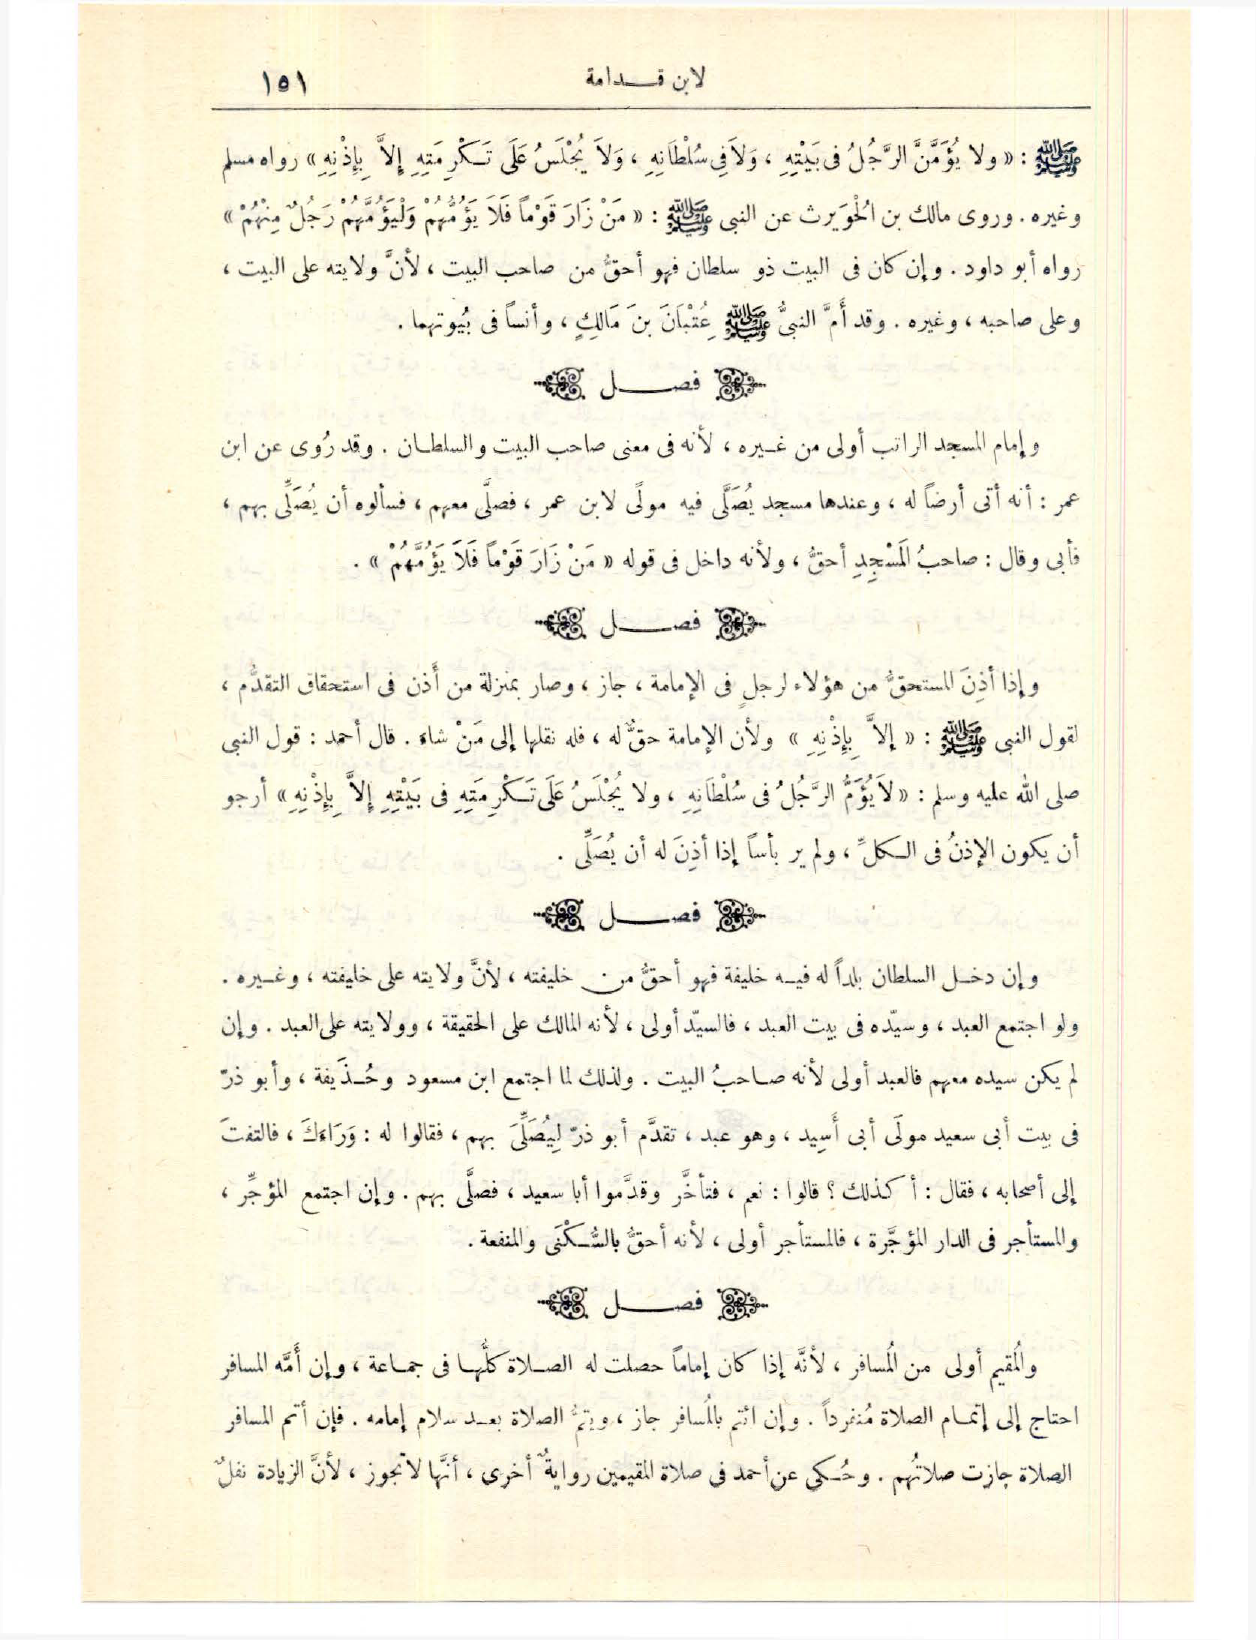 لابن قدامة ١٥١
ﷺ : « ولا يُؤَمَّنَّ الرَّجُلُ فى بَيْتِهِ ، وَلاَ فِى سُلْطَانِهِ ، وَلاَ يُجْلَسُ عَلَى تَكْرِمَتِهِ إِلاَّ بِإِذْنِهِ » رواه مسلم
وغيره . وروى مالك بن الُحْوَيرث عن النبى ﷺ : « مَنْ زَارَ قَوْماً فَلاَ يَؤُمُّهُمْ وَلْيَؤُمَّهُمْ رَجُلٌ مِنْهُمْ »
رواه أبو داود . وإن كان فى البيت ذو سلطان فهو أحقُّ من صاحب البيت ، لأنَّ ولايته على البيت ،
وعلى صاحبه ، وغيره . وقد أَمَّ النبىُّ ﷺ عِتْبَانَ بنَ مَالِكٍ ، وأنساً فى بُيوتهما .
فصل
وإمام المسجد الراتب أولى من غيره ، لأنه فى معنى صاحب البيت والسلطان . وقد رُوى عن ابن
عمر : أنه أتى أرضاً له ، وعندها مسجد يُصَلَّى فيه مولًى لابن عمر ، فصلَّى معهم ، فسألوه أن يُصَلِّى بهم ،
فأبى وقال : صاحبُ الَمَسْجِدِ أحقُّ ، ولأنه داخل فى قوله « مَنْ زَارَ قَوْماً فَلاَ يَؤُمَّهُمْ » .
فصل
وإذا أذِنَ المستحقُّ من هؤلاء لرجلٍ فى الإمامة ، جاز ، وصار بمنزلة من أَذن فى استحقاق التقدُّم ،
لقول النبى ﷺ : « إلاَّ بِإِذْنِهِ » ولأن الإمامة حقٌّ له ، فله نقلها إلى مَنْ شاءَ . قال أحمد : قول النبى
صلى الله عليه وسلم : « لاَ يُؤَمُّ الرَّجُلُ فى سُلْطَانِهِ ، ولا يُجْلَسُ عَلَى تَكْرِمَتِهِ فى بَيْتِهِ إِلاَّ بِإِذْنِهِ » أرجو
أن يكون الإذنُ فى الكلِّ ، ولم ير بأساً إذا أذِنَ له أن يُصَلِّى .
فصل
وإن دخل السلطان بلداً له فيه خليفة فهو أحقُّ من خليفته ، لأنَّ ولايته على خليفته ، وغيره .
ولو اجتمع العبد ، وسيّده فى بيت العبد ، فالسيّد أولى ، لأنه المالك على الحقيقة ، وولايته على العبد . وإن
لم يكن سيده معهم فالعبد أولى لأنه صاحبُ البيت . ولذلك لما اجتمع ابن مسعود وحُذَيفة ، وأبو ذرّ
فى بيت أبى سعيد مولَى أبى أَسِيد ، وهو عبد ، تقدَّم أبو ذرّ لِيُصَلِّىَ بهم ، فقالوا له : وَرَاءَكَ ، فالتفتَ
إلى أصحابه ، فقال : أكذلك ؟ قالوا : نعم ، فتأخَّر وقدَّموا أبا سعيد ، فصلَّى بهم . وإن اجتمع المؤجِّر ،
والمستأجر فى الدار المؤجَّرة ، فالمستأجر أولى ، لأنه أحقُّ بالسُّكْنَى والمنفعة .
فصل
والُمقيم أولى من الُمسافر ، لأنَّه إذا كان إماماً حصلت له الصلاة كلُّها فى جماعة ، وإن أَمَّه المسافر
احتاج إلى إتمام الصلاة مُنفرداً . وإن ائتم بالُمسافر جاز ، ويتمُّ الصلاة بعد سلام إمامه . فإن أتم المسافر
الصلاة جازت صلاتُهم . وحُكى عن أحمد فى صلاة المقيمين روايةٌ أخرى ، أنَّها لا تجوز ، لأنَّ الزيادة نفلٌ